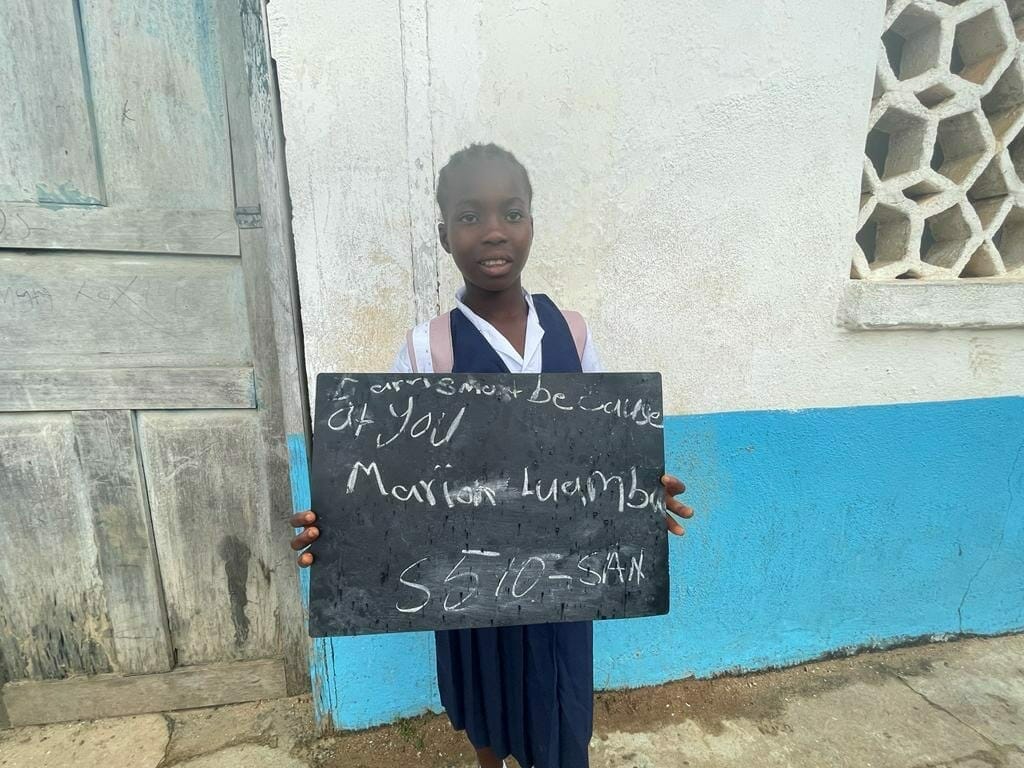 I am smart because
of you
Marion Luamba
S510-SAN